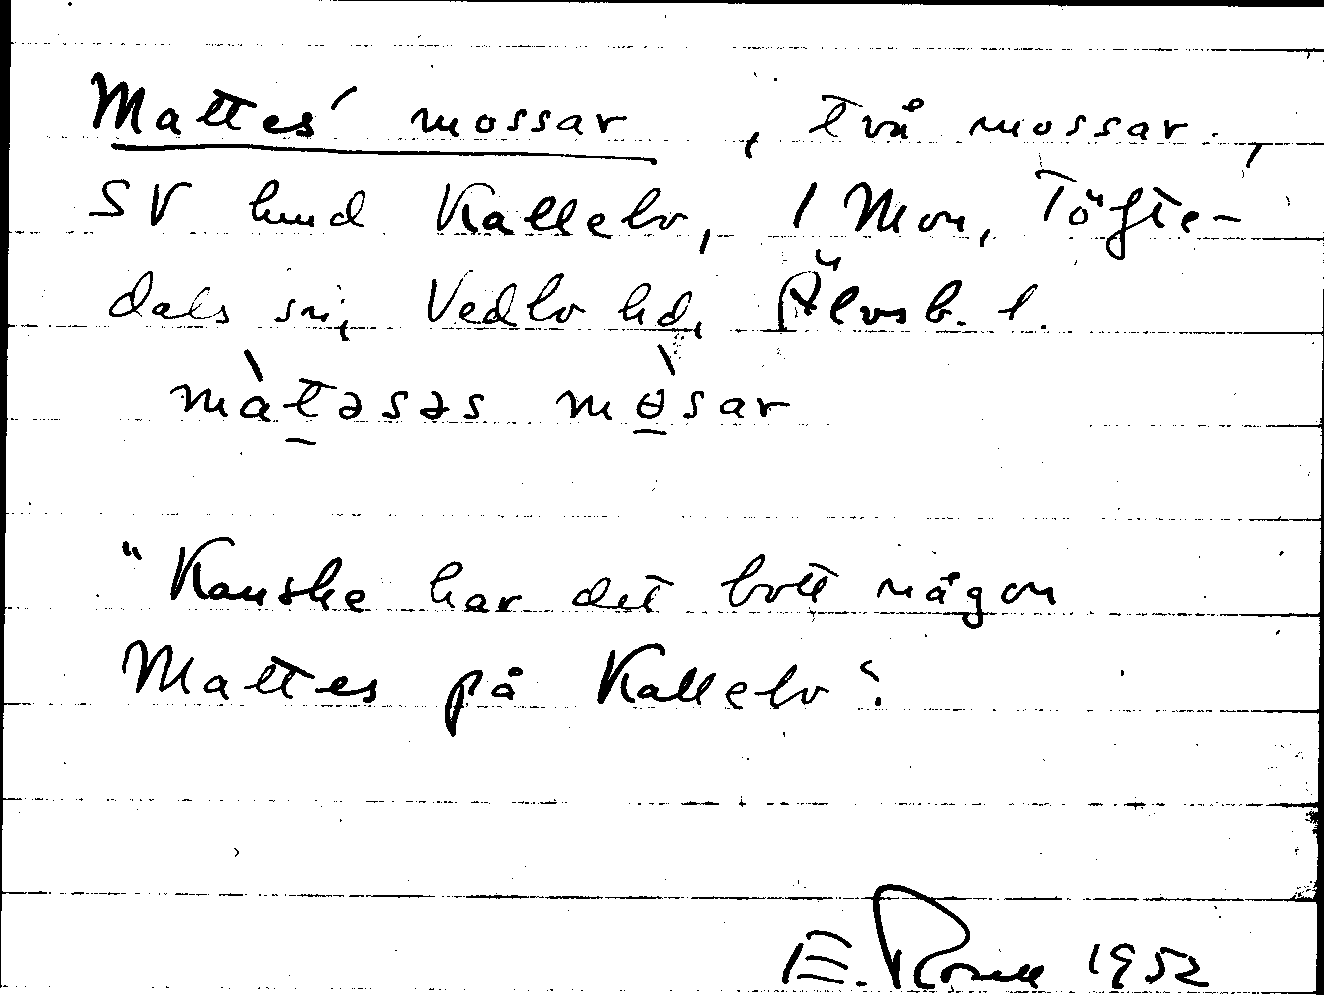 Mattes' mossar, två mossar,
SV hmd Kallelv, 1 Mon, Töfte-
dals sn, Vedbo hd, Älvsb. l.
màtəsəs mòsar
"Kanske har det bott någon
Mattes på Kallelv".
E. 1952